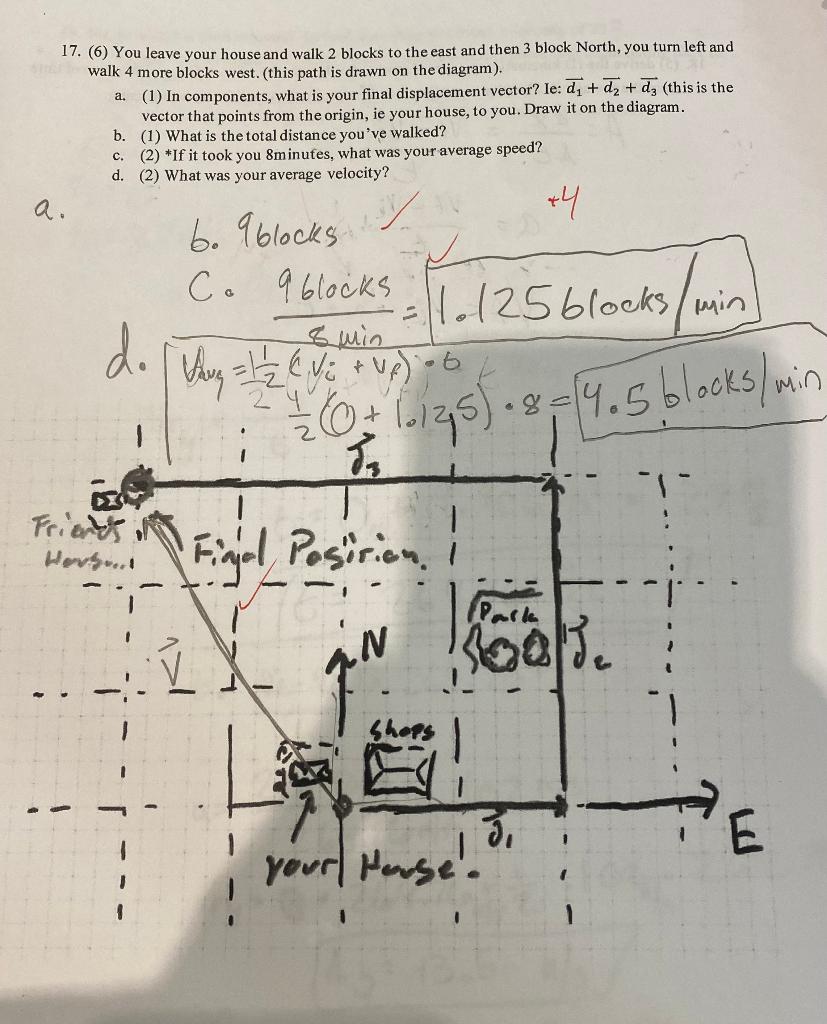 17. (6) You leave your house and walk 2 blocks to the east and then 3 block North, you turn left and
walk 4 more blocks west. (this path is drawn on the diagram).
a. (1) In components, what is your final displacement vector? Ie: $\vec{d_1} + \vec{d_2} + \vec{d_3}$ (this is the
vector that points from the origin, ie your house, to you. Draw it on the diagram.
b. (1) What is the total distance you've walked?
c. (2) *If it took you 8minutes, what was your average speed?
d. (2) What was your average velocity?
a.
+4
b. 9 blocks ✓
C. 9 blocks / 8 min = 1.125 blocks/min
d. Vavg = 1/2 (Vi + Vf) · t
1/2 (0 + 1.125) · 8 = 4.5 blocks/min
d3
Friends
House...
Final Position.
Park
d2
V
N
Shops
d1
E
your House.